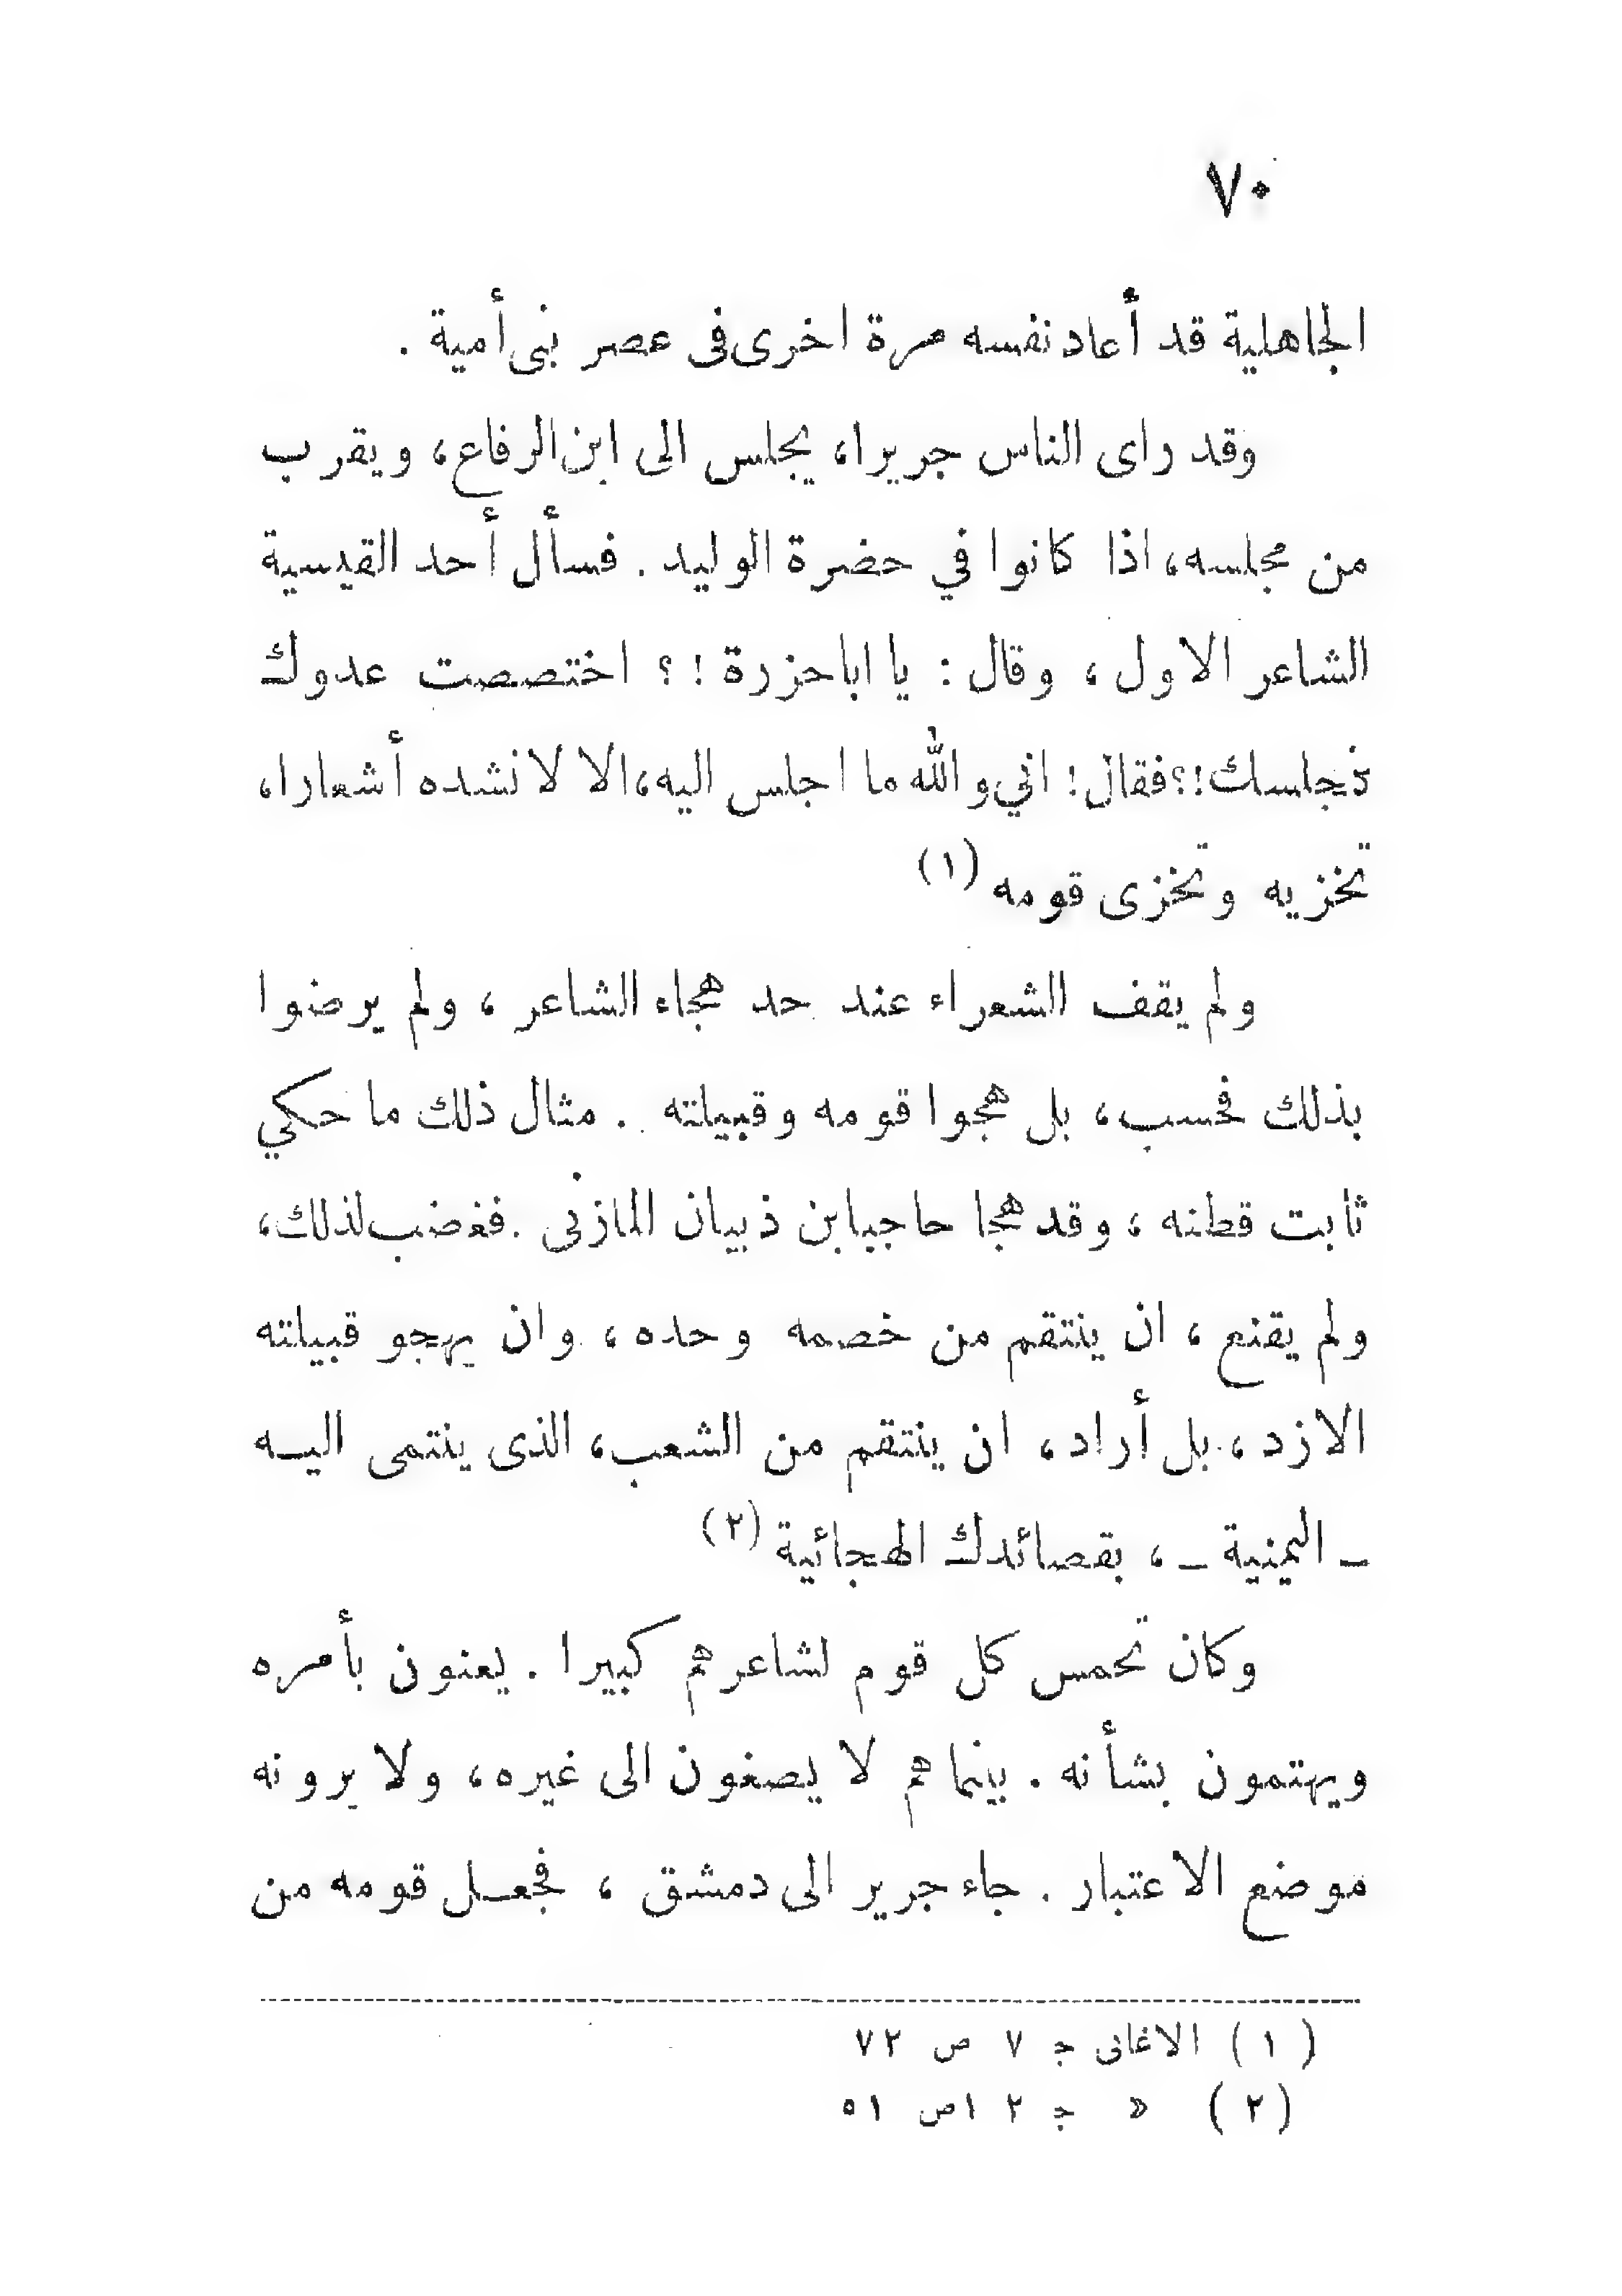 ٧٠
الجاهلية قد أعاد نفسه مرة اخرى فى عصر بنى أمية .
وقد راى الناس جريرا، يجلس الى ابن الرفاع، ويقرب
من مجلسه، اذا كانوا في حضرة الوليد . فسأل أحد القيسية
الشاعر الاول ، وقال : يا ابا حزرة ! ؟ اختصصت عدوك
بمجلسك!؟ فقال! اني والله ما اجلس اليه، الا لا نشده أشعارا،
تخزيه وتخزى قومه (١)
ولم يقف الشعراء عند حد هجاء الشاعر ، ولم يرضوا
بذلك فحسب، بل هجوا قومه وقبيلته . مثال ذلك ما حكي
ثابت قطنه ، وقد هجا حاجبا بن ذبيان المازنى . فغضب لذلك،
ولم يقنع ، ان ينتقم من خصمه وحده ، وان يهجو قبيلته
الازد ، بل أراد ، ان ينتقم من الشعب، الذى ينتمى اليه
ـ اليمنية ـ ، بقصائدك الهجائية (٢)
وكان تحمس كل قوم لشاعرهم كبيرا . يعنون بأمره
ويهتمون بشأنه . بينما هم لا يصغون الى غيره ، ولا يرونه
موضع الاعتبار . جاء جرير الى دمشق ، فجعل قومه من
( ١ ) الاغانى ج ٧ ص ٧٢
( ٢ ) » ج ١٢ ص ٥١